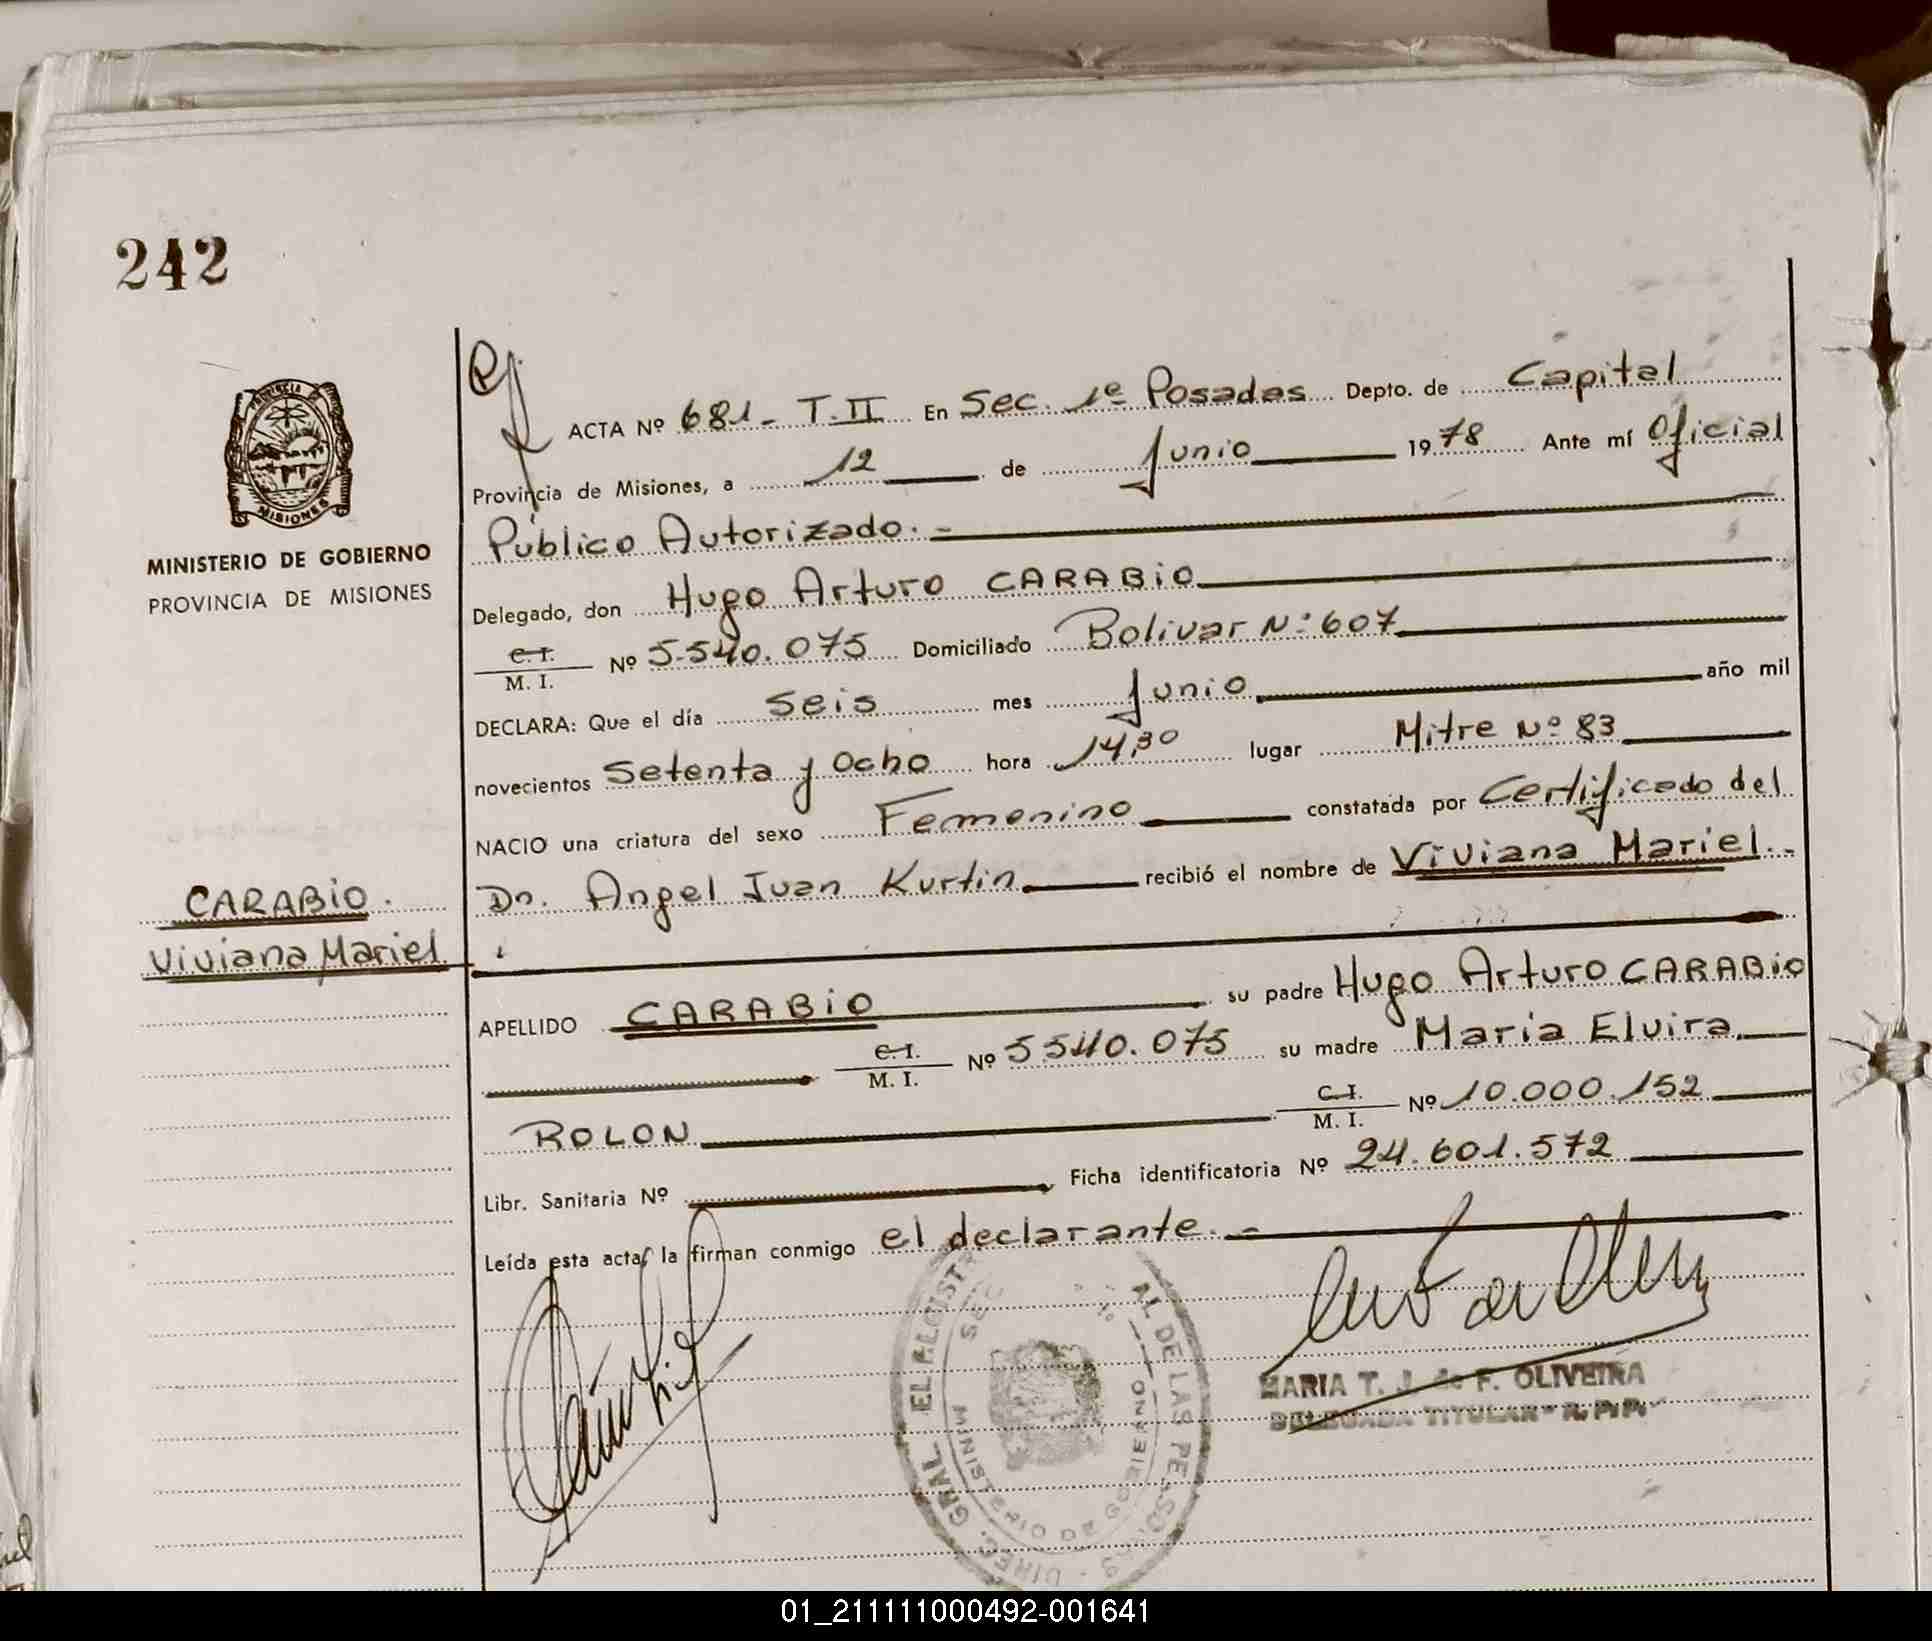 242
PROVINCIA
MISIONES
MINISTERIO DE GOBIERNO
PROVINCIA DE MISIONES
CARABIO.
Viviana Mariel
ACTA Nº 681- T.II En Sec. 1ª Posadas Depto. de Capital
Provincia de Misiones, a 12 de Junio 1978 Ante mí Oficial
Público Autorizado.-
Delegado, don Hugo Arturo CARABIO
C. I.
M. I. Nº 5.540.075 Domiciliado Bolivar Nº 607
DECLARA: Que el día Seis mes Junio año mil
novecientos Setenta y Ocho hora 14,30 lugar Mitre Nº 83
NACIO una criatura del sexo Femenino constatada por Certificado del
Dr. Angel Juan Kurtin recibió el nombre de Viviana Mariel.-
APELLIDO CARABIO su padre Hugo Arturo CARABIO
C. I.
M. I. Nº 5.540.075 su madre Maria Elvira
ROLON C. I.
M. I. Nº 10.000.152
Libr. Sanitaria Nº Ficha identificatoria Nº 24.601.572
Leída esta acta, la firman conmigo el declarante.-
MARIA T. J. de F. OLIVEIRA
DELEGADA TITULAR - R. P. P.
MINISTERIO DE GOBIERNO
01_211111000492-001641